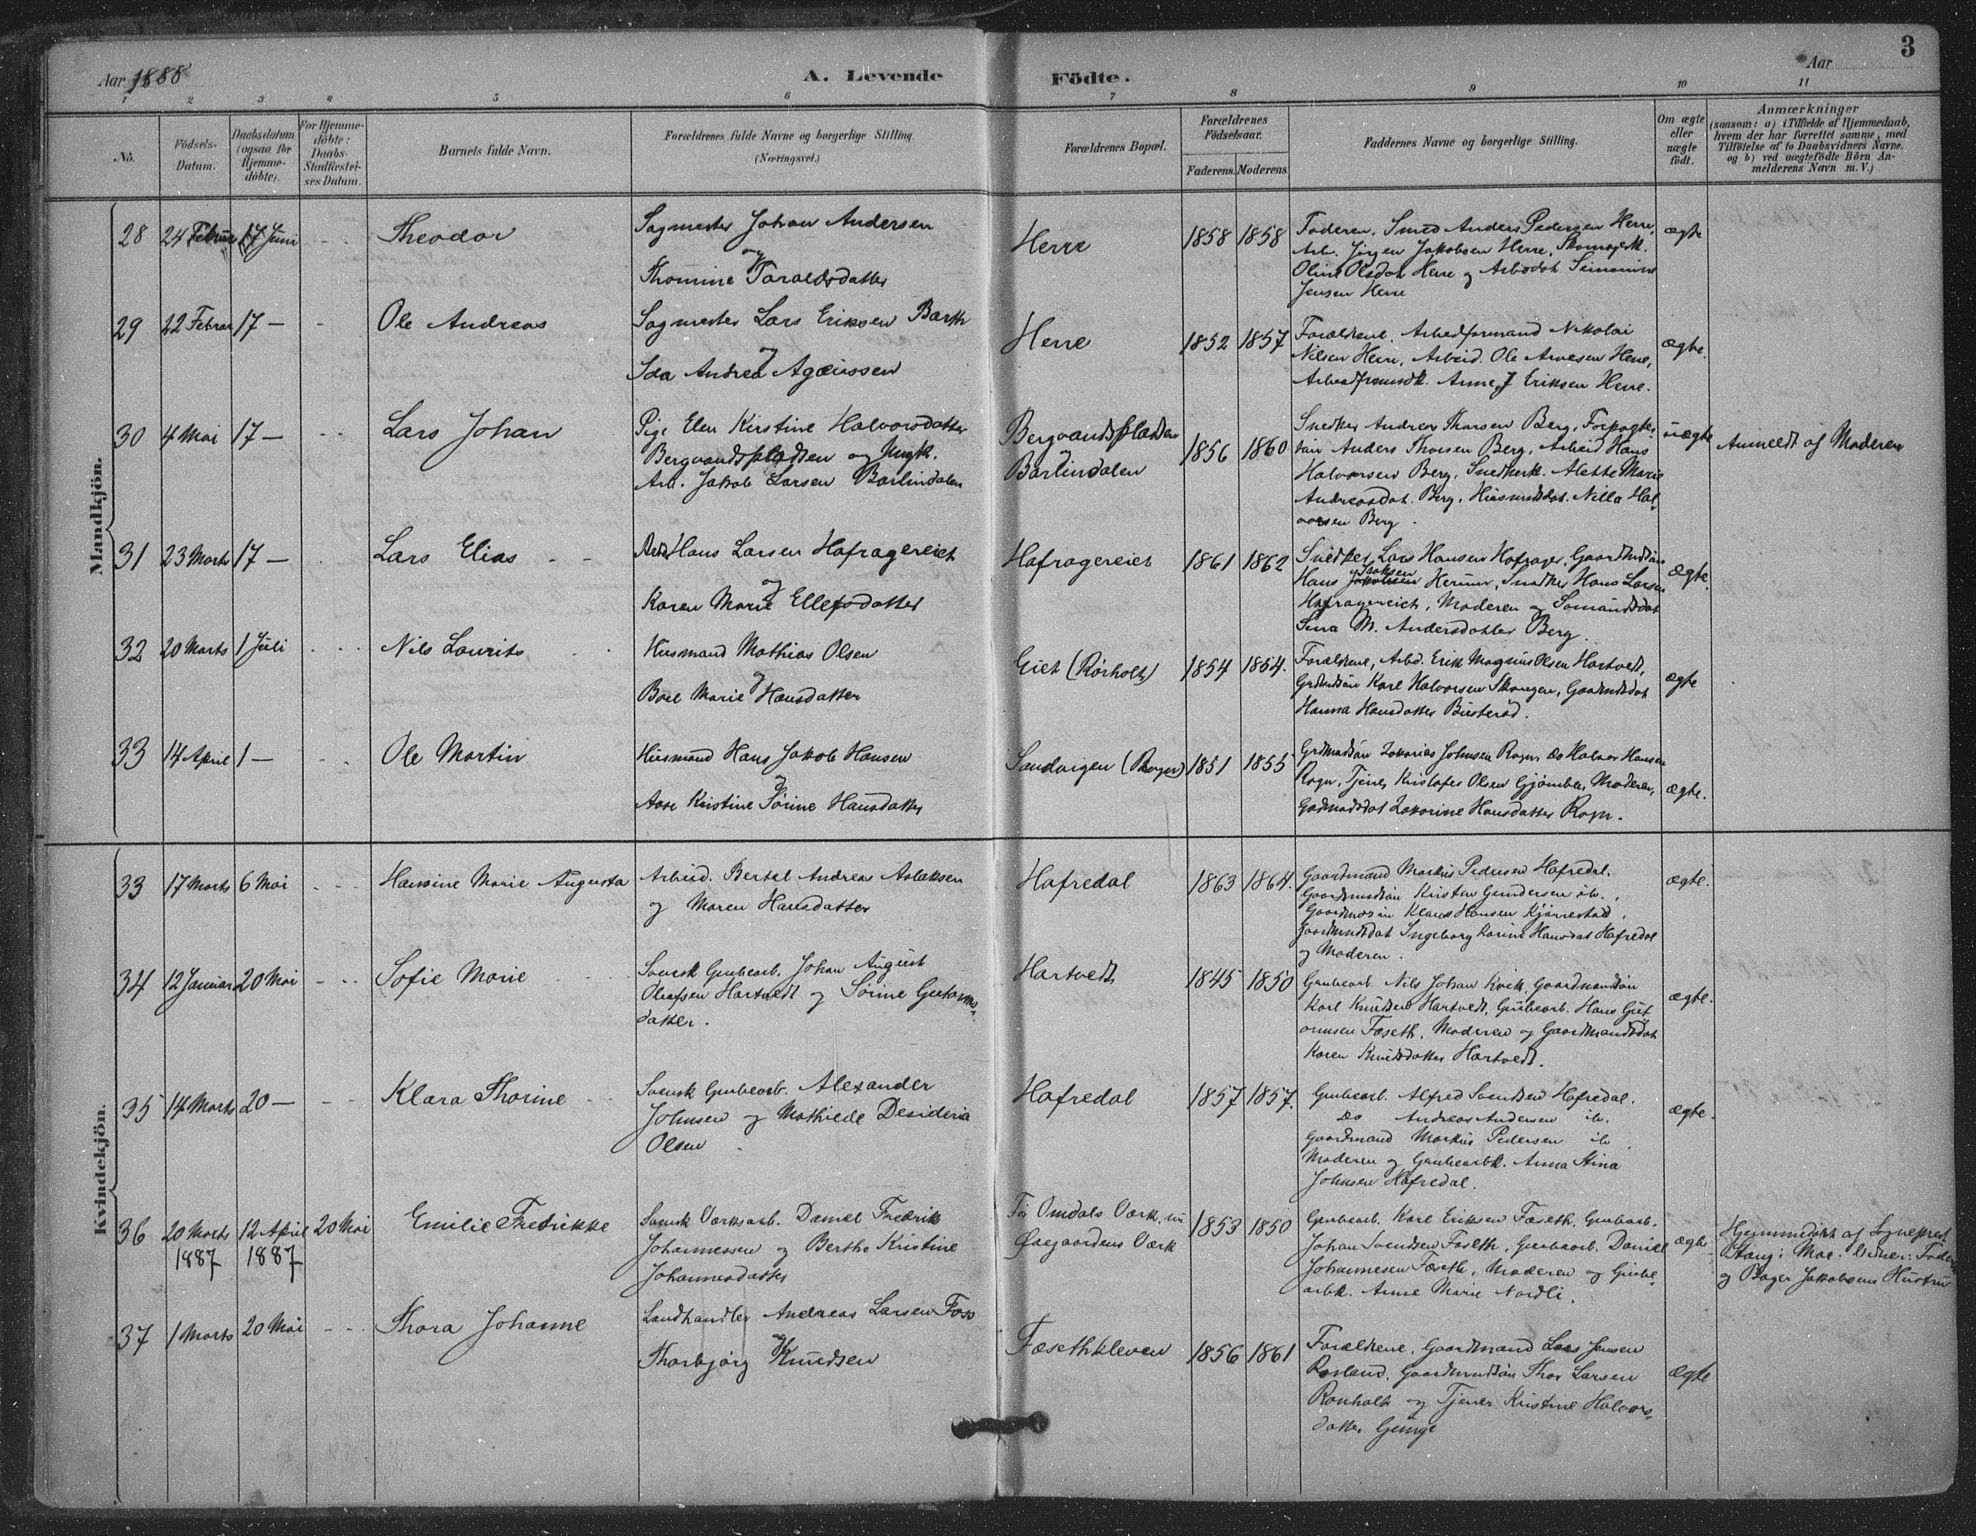 Aar 1888
A. Levende Födte.
Aar
3
1 2 3 4 5 6 7 8 9 10 11
No.
Födsels-Datum.
Daabsdatum (ogsaa for Hjemmedöbte).
For Hjemmedöbte: Daabs-Stadfæstelses Datum.
Barnets fulde Navn.
Forældrenes fulde Navne og borgerlige Stilling. (Næringsvei.)
Forældrenes Bopæl.
Forældrenes Födselsaar.
Faderens. Moderens.
Faddernes Navne og borgerlige Stilling.
Om ægte eller uægte födt.
Anmærkninger
(saasom: a) i Tilfælde af Hjemmedaab, hvem der har forrettet samme, med Tilföielse af to Daabsvidners Navne. og b) ved uægtefödte Börn Anmelderens Navn m. V.)
Mandkjön.
28 24 Februar 17 Juni Theodor
Sagmester Johan Andersen
og
Thomine Taraldsdatter
Herre 1858 1858
Faderen, Smed Anders Pedersen Herre,
Arb. Jörgen Jakobsen Herre, Skomagerk.
Oline Olsdat Herre og Arbdat Simonine
Jensen Herre
ægte
29 22 Februar 17 — Ole Andreas
Sagmester Lars Eriksen Barth
og
Ida Andrea Agæussen
Herre 1852 1857
Forældrene, Arbedformand Nikolai
Nilsen Herre, Arbeid. Ole Arvesen Herre,
Arbedformdk. Anne J Eriksen Herre.
ægte.
30 4 Mai 17 — Lars Johan
Pige Elen Kirstine Halvorsdatter
Bergvandspladsen og Ungk.
Arb. Jakob Larsen Barlindalen
Bergvandspladsen
Barlindalen
1856 1860
Snedker Andreas Thorsen Berg, Forpagter
Anders Thorsen Berg, Arbeid Hans
Halvorsen Berg, Snedkerk. Alette Marie
Andreasdat. Berg, Husmdsdat. Nilla Hal-
vorsen Berg.
uægte
Anmeldt af Moderen
31 23 Marts 17 — Lars Elias
Arbd Hans Larsen Hafragereiet
og
Karen Marie Ellefsdatter
Hafragereiet 1861 1862
Snedker Lars Hansen Hafrager, Gaardmdsön
Hans Isaksen Herum, Snedker Hans Larsen
Hafragereiet, Moderen og Sömandsdat
Sina M. Andersdatter Berg.
ægte.
32 20 Marts 1 Juli Nils Laurits
Husmand Mathias Olsen
og
Boel Marie Hansdatter
Eiet (Rörholt) 1854 1854.
Forældrene, Arbd. Erik Magnus Olsen Hartvedt,
Grdmdsön Karl Halvorsen Skougen, Gaardmdsdat
Hanna Hansdatter Busteröd.
ægte
33 14 April 1 — Ole Martin
Husmand Hans Jakob Hansen
og
Aase Kirstine Sörine Hansdatter
Sandvigen (Rogn) 1851 1855
Grdmadsön Zakarias Johnsen Rogn, do Halvor Hansen
Rogn, Tjener Kristofer Olsen Gjömble, Moderen,
Gadmadsdat Zakarine Hansdatter Rogn.
ægte.
Kvindekjön.
33 17 Marts 6 Mai Hansine Marie Augusta
Arbeid. Bertel Andreas Aslaksen
og Maren Hansdatter
Hafredal 1863 1864.
Gaardmand Markus Pedersen Hafredal.
Gaardmdsön Kristen Gundersen ib.,
Gaardmdsön Klaus Hansen Kjörrestad,
Gaardmdsdat Ingeborg Karine Hansdat Hafredal
og Moderen.
ægte.
34 12 Januar 20 Mai Sofie Marie
Svensk Grubearb. Johan August
Olafsen Hartvedt og Sörine Guttorms-
datter.
Hartvedt 1845 1850
Grubearb. Nils Johan Kvik, Gaardmandsön
Karl Knudsen Hartvedt, Grubearb. Hans Gut
ormsen Fæseth, Moderen og Gaardmandsdat
Karen Knudsdatter Hartvedt.
ægte.
35 14 Marts 20 — Klara Thorine
Svensk Grubearb. Alexander
Johnsen og Mathilde Desideria
Olsen
Hafredal 1857 1857.
Grubearb. Alfred Svendsen Hafredal.
Do Andreas Andersen ib.
Gaardmand Markus Pedersen ib
Moderen og Grubearbk. Anna Stina
Johnsen Hafredal.
ægte.
36 20 Marts 1887 12 April 1887 20 Mai Emilie Fredrikke
Svensk Værksarb. Daniel Fredrik
Johannessen og Berthe Kristine
Johannesdatter
För Omdals Værk, nu
Ösegaardens Værk
1853 1850
Grubearb. Karl Eriksen Fæseth, Grubearb.
Johan Svendsen Fæseth, Grubearb. Daniel
Johannesen Fæseth, Moderen og Grube-
arbk. Anne Marie Nordli.
ægte
Hjemmedöbt af Sogneprest
Stang: Moe. Vidner: Fader
og Bager Jakobsens Hustru
37 1 Marts 20 Mai Thora Johanne
Landhandler Andreas Larsen Foss
og
Thorbjörg Knudsen
Fæsethkleven 1856 1861
Forældrene, Gaardmand Lars Jensen
Rosland, Gaardmandsön Thor Larsen
Rönholt og Tjener Kristine Halvors-
datter Gunge
ægte